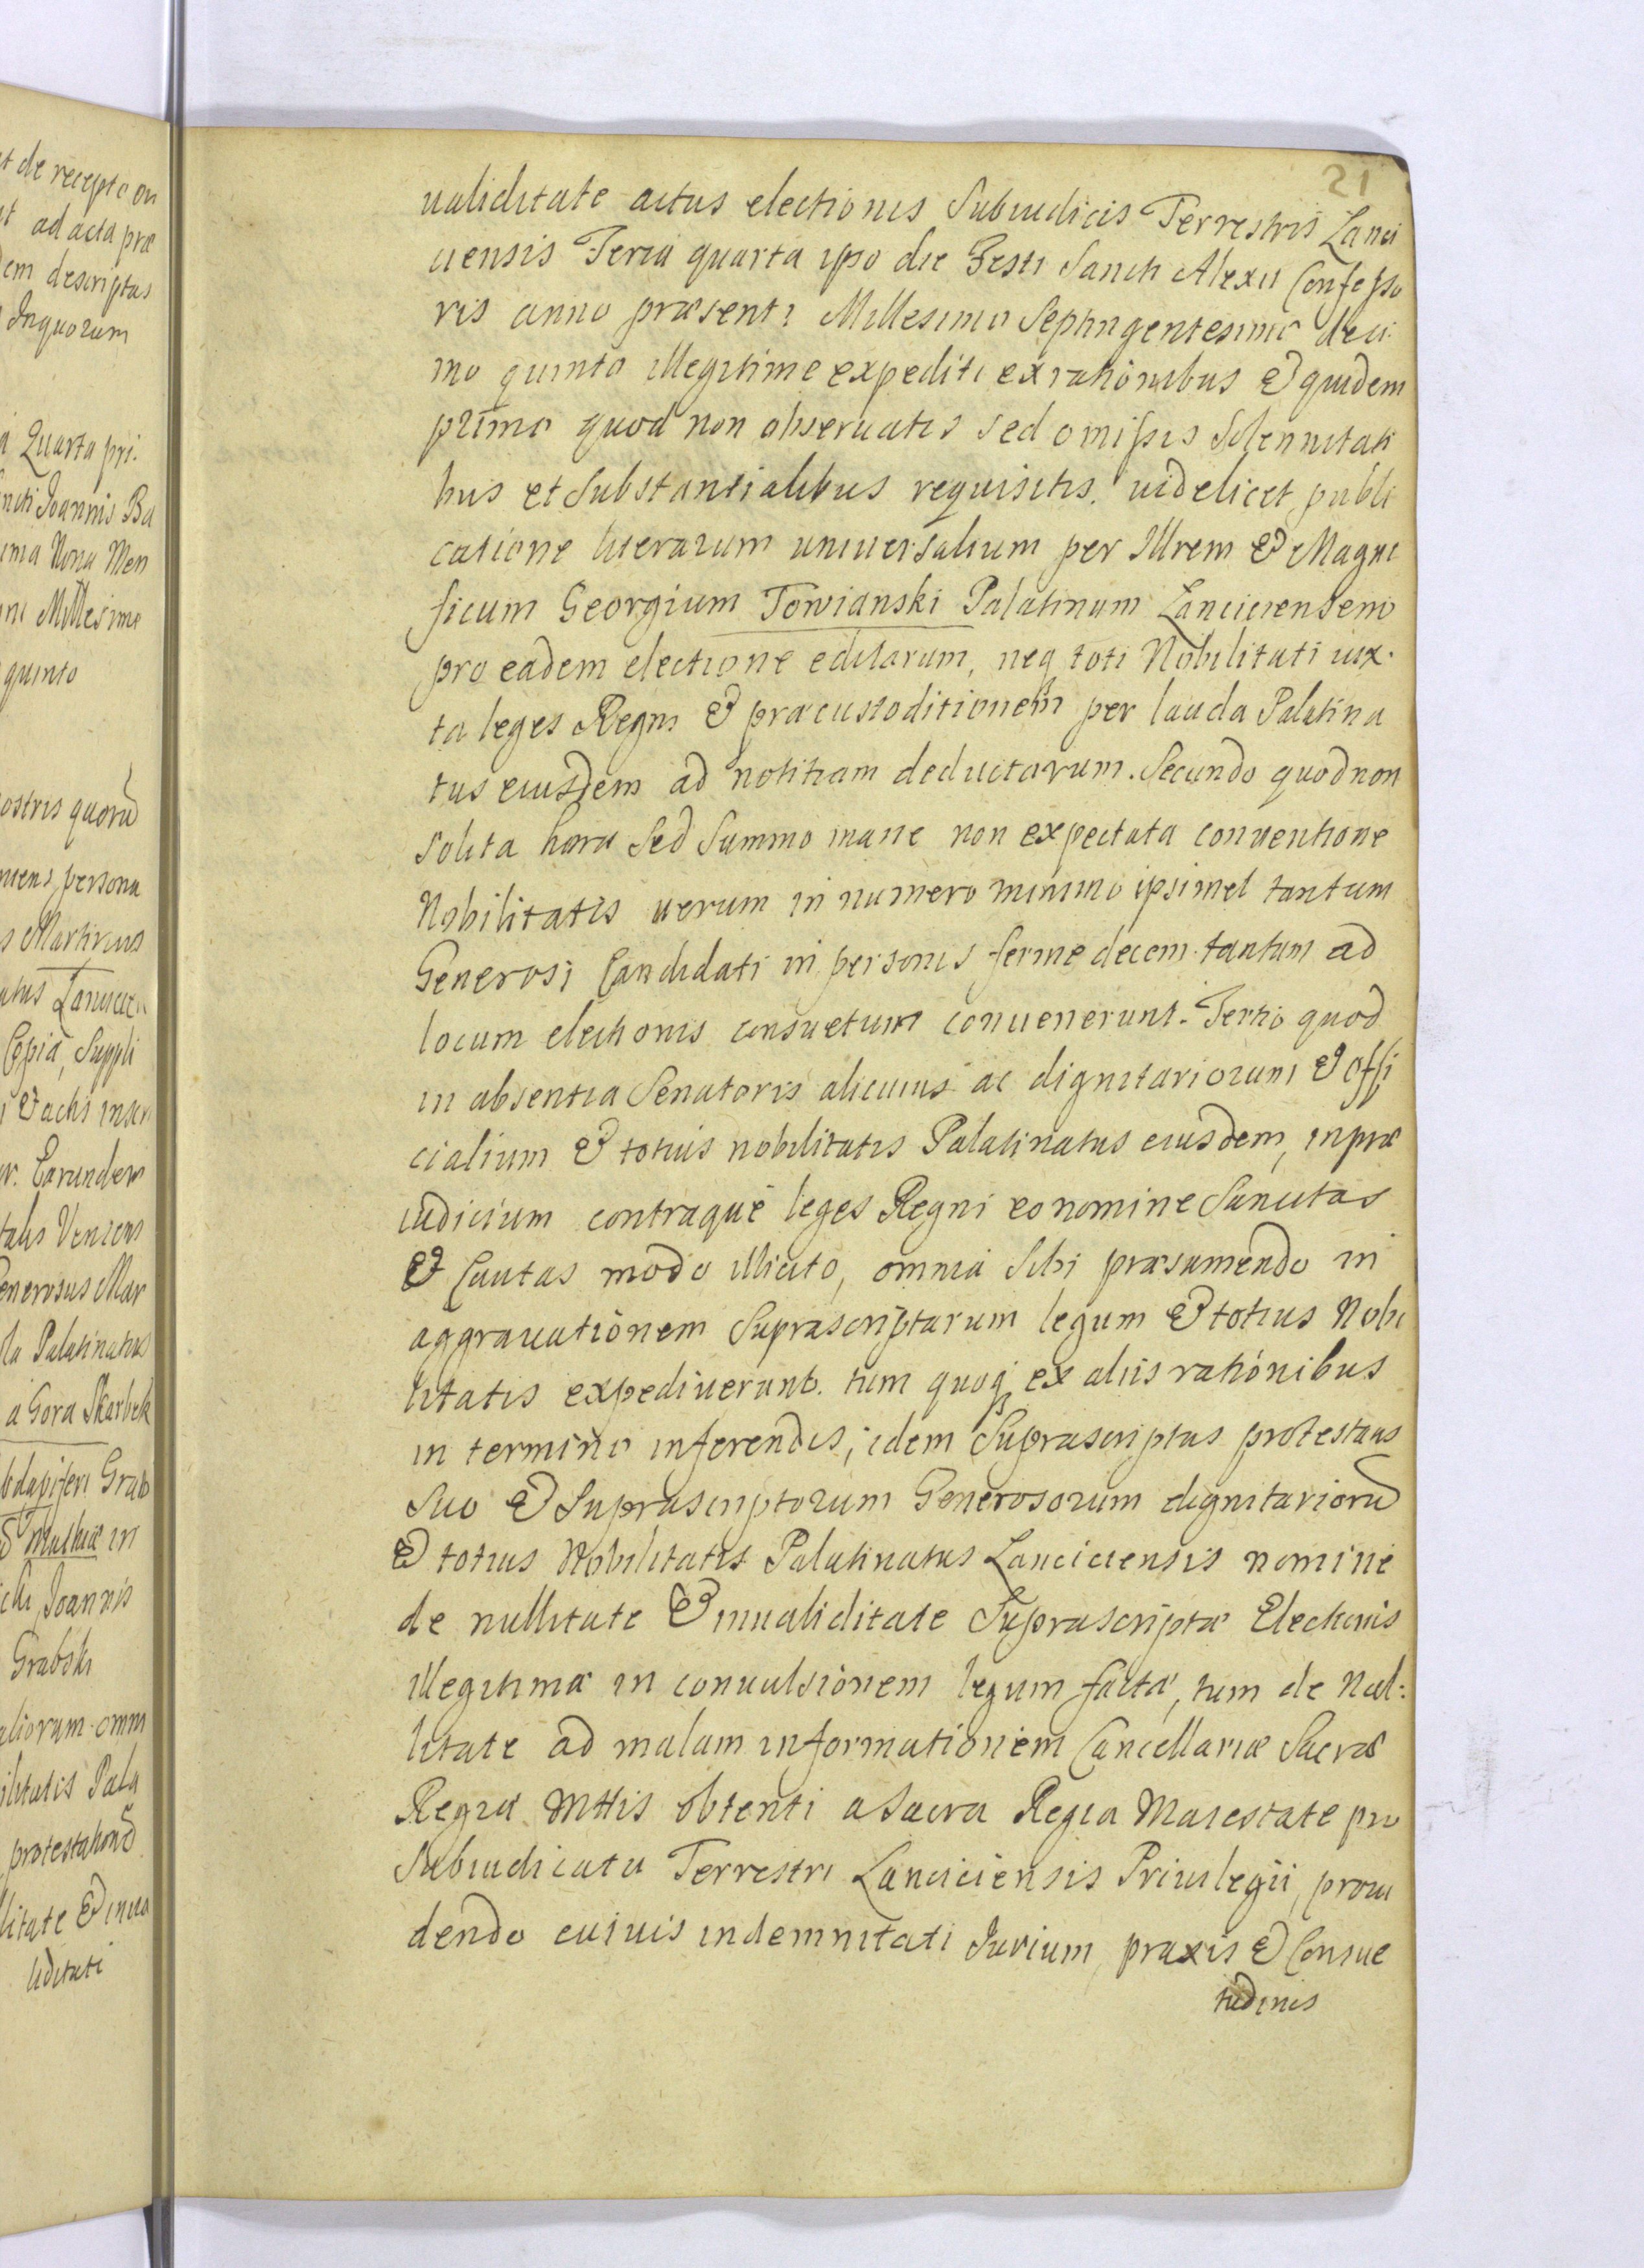 et de recepto on
ad acta præ
dem descriptas
Inquorum
Quarta pri.
Joannis Ba
Nona Men
Millesimo
quinto
nostris quorū
persona
Martinus
Lancicien
Copia, Suppli
& actis inscri
Earundem
talis Veniens
Generosus Mar
Palatinatus
a Gora Skarbek
Grab
Mathiæ in
Joannis
Grabski
aliorum omni
ilitatis Pala
protestationē
litate & inva
liditati
21
ualiditate actus electionis Subiudicis Terrestris Lanci
ciensis Feria quarta ipso die Festi Sancti Alexii Confesso
ris anno præsenti Millesimo Septingentesimo deci
mo quinto illegitime expediti ex rationibus & quidem
primo quod non obseruatis sed omissis Solennitati
bus et Substantialibus requisitis. uidelicet publi
catione literarum uniuersalium per Illrem & Magni
ficum Georgium Towianski Palatinum Lanciciensem
pro eadem electione editarum, neq toti Nobilitati iux.
ta leges Regni & præcustoditionem per lauda Palatina
tus eiusdem ad notitiam deductarum. Secundo quod non
Solita hora Sed Summo mane non expectata conuentione
Nobilitatis uerum in numero minimo ipsimet tantum
Generosi Candidati in personis ferme decem tantum ad
locum electionis consuetum conuenerunt. Tertio quod
in absentia Senatoris alicuius ac dignitariorum & Offi
cialium & totius nobilitatis Palatinatus eiusdem, in præ
iudicium contraque leges Regni eo nomine Sancitas
& Cautas modo illicito, omnia Sibi præsumendo in
aggrauationem Suprascriptarum legum & totius Nobi
litatis expediuerunt. tum quoq ex aliis rationibus
in termino inferendis, idem Suprascriptus protestans
Suo & Suprascriptorum Generosorum dignitariorū
& totius Nobilitatis Palatinatus Lanciciensis nomine
de nullitate & inualiditate Suprascriptæ Electionis
illegitimæ in conuulsionem legum factæ, tum de Nul:
litate ad malam informationem Cancellariæ Sacræ
Regiæ Mttis obtenti a Sacra Regia Maiestate pro
Subiudicatu Terrestri Lanciciensis Priuilegii, proui
dendo cuiuis indemnitati Iurium, praxis & Consue
tudinis